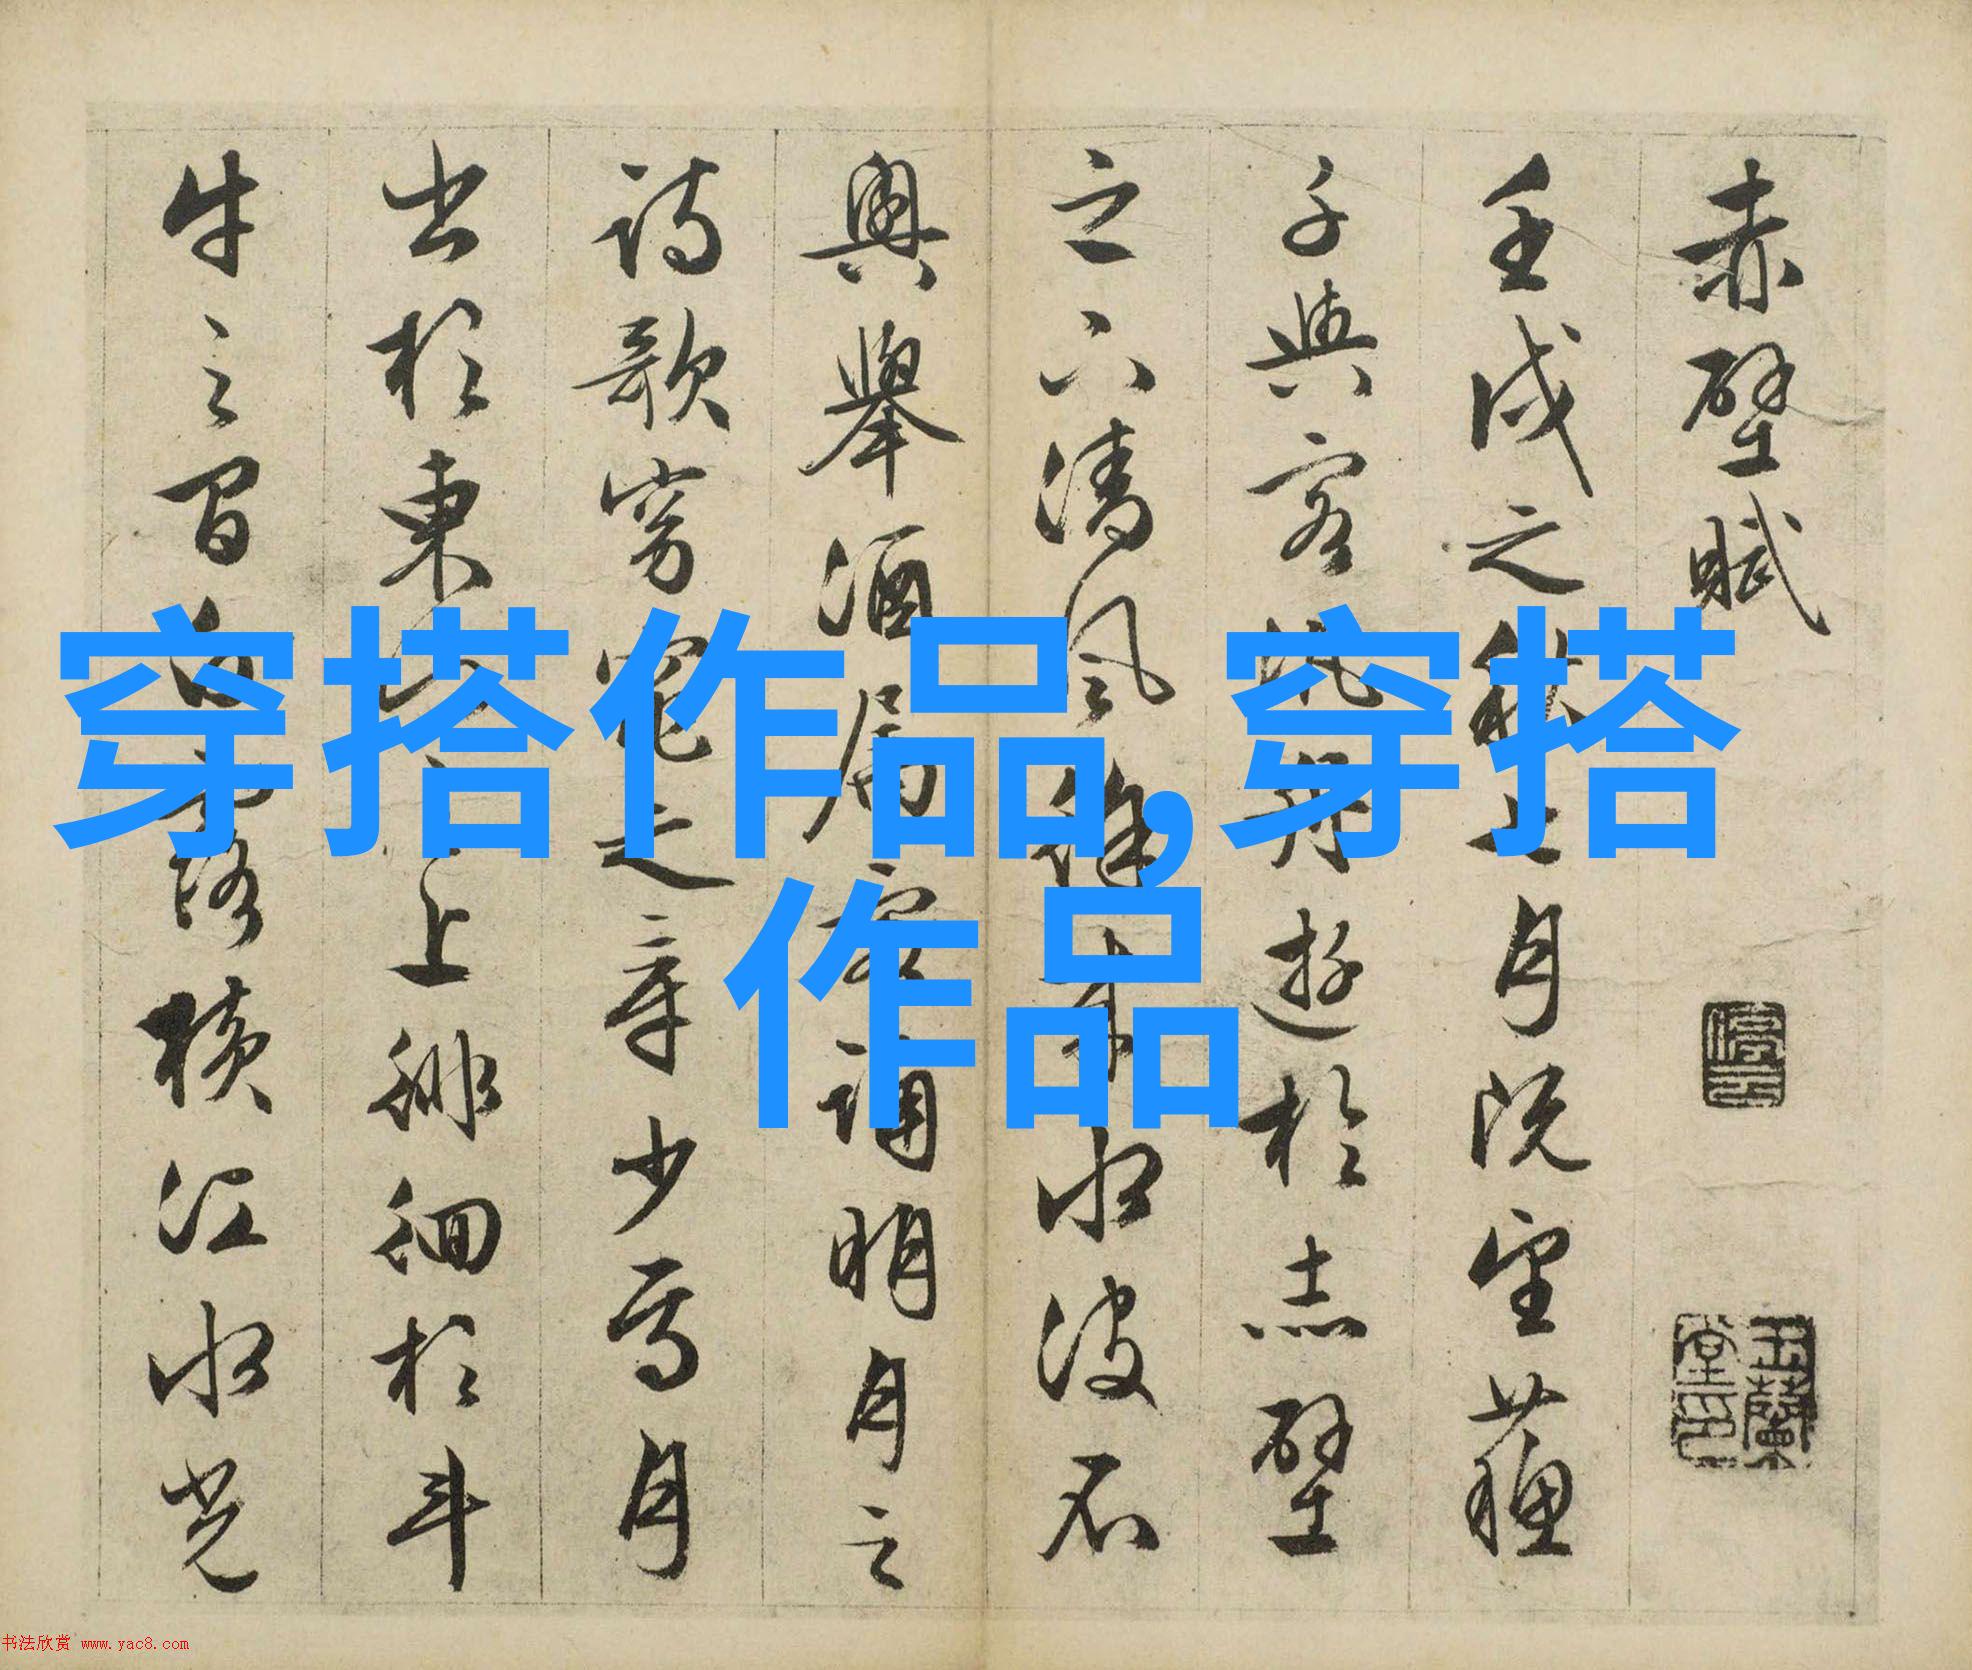 赤壁賦
停雲
玉蘭堂印
壬戌之秋七月既望蘇
子與客泛舟遊於赤壁
之下清風徐來水波不
興舉酒屬客誦明月之
詩歌窈窕之章少焉月
出於東山之上徘徊於斗
牛之間白露橫江水光
穿搭作品,穿搭
作品
书法欣赏 www.yac8.com